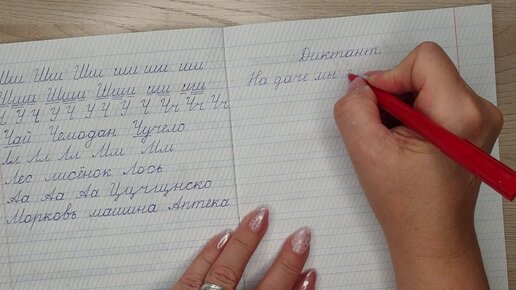 Шш Шш Шш шш шш шш
Шшш Шшш Шшш шш шш
Ч Ч Ч Ч Ч Ч Ч Ч Чч Чч Чч
Чай Чемодан Чучело
Лл Лл Лл Мм Мм
Лес лисёнок Лось
Аа Аа Аа
Морковь машина Аптека
Диктант.
На даче мы